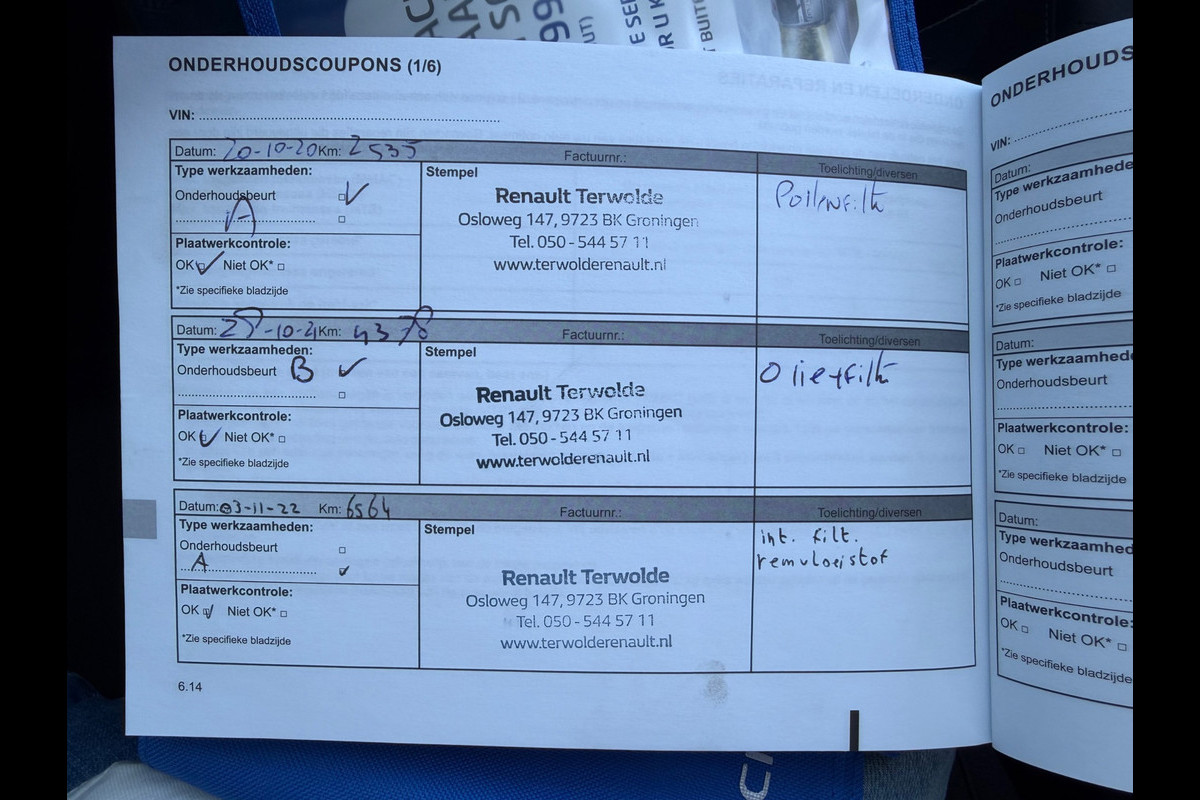 ONDERHOUDSCOUPONS (1/6)
VIN:
Datum: 20-10-20 Km: 2535 Factuurnr.: Toelichting/diversen
Type werkzaamheden:
Onderhoudsbeurt
A
Plaatwerkcontrole:
OK Niet OK*
*Zie specifieke bladzijde
Stempel
Renault Terwolde
Osloweg 147, 9723 BK Groningen
Tel. 050 - 544 57 11
www.terwolderenault.nl
Pollenfilt
Datum: 28-10-21 Km: 4378 Factuurnr.: Toelichting/diversen
Type werkzaamheden:
Onderhoudsbeurt B
Plaatwerkcontrole:
OK Niet OK*
*Zie specifieke bladzijde
Stempel
Renault Terwolde
Osloweg 147, 9723 BK Groningen
Tel. 050 - 544 57 11
www.terwolderenault.nl
Olie+filt
Datum: 03-11-22 Km: 6564 Factuurnr.: Toelichting/diversen
Type werkzaamheden:
Onderhoudsbeurt
A
Plaatwerkcontrole:
OK Niet OK*
*Zie specifieke bladzijde
Stempel
Renault Terwolde
Osloweg 147, 9723 BK Groningen
Tel. 050 - 544 57 11
www.terwolderenault.nl
int. filt.
remvloeistof
6.14
ONDERHOUDS
VIN:
Datum:
Type werkzaamhede
Onderhoudsbeurt
Plaatwerkcontrole:
OK Niet OK*
*Zie specifieke bladzijde
Datum:
Type werkzaamhede
Onderhoudsbeurt
Plaatwerkcontrole:
OK Niet OK*
*Zie specifieke bladzijde
Datum:
Type werkzaamhed
Onderhoudsbeurt
Plaatwerkcontrole:
OK Niet OK*
*Zie specifieke bladzijde